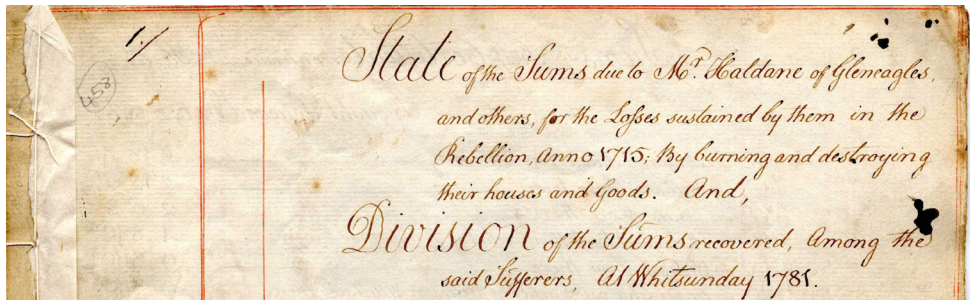 1./
458
State of the Sums due to Mr. Haldane of Gleneagles,
and others, for the Losses sustained by them in the
Rebellion, Anno 1715; By burning and destroying
their houses and Goods. And,
Division of the Sums recovered, Among the
said Sufferers, At Whitsunday 1781.